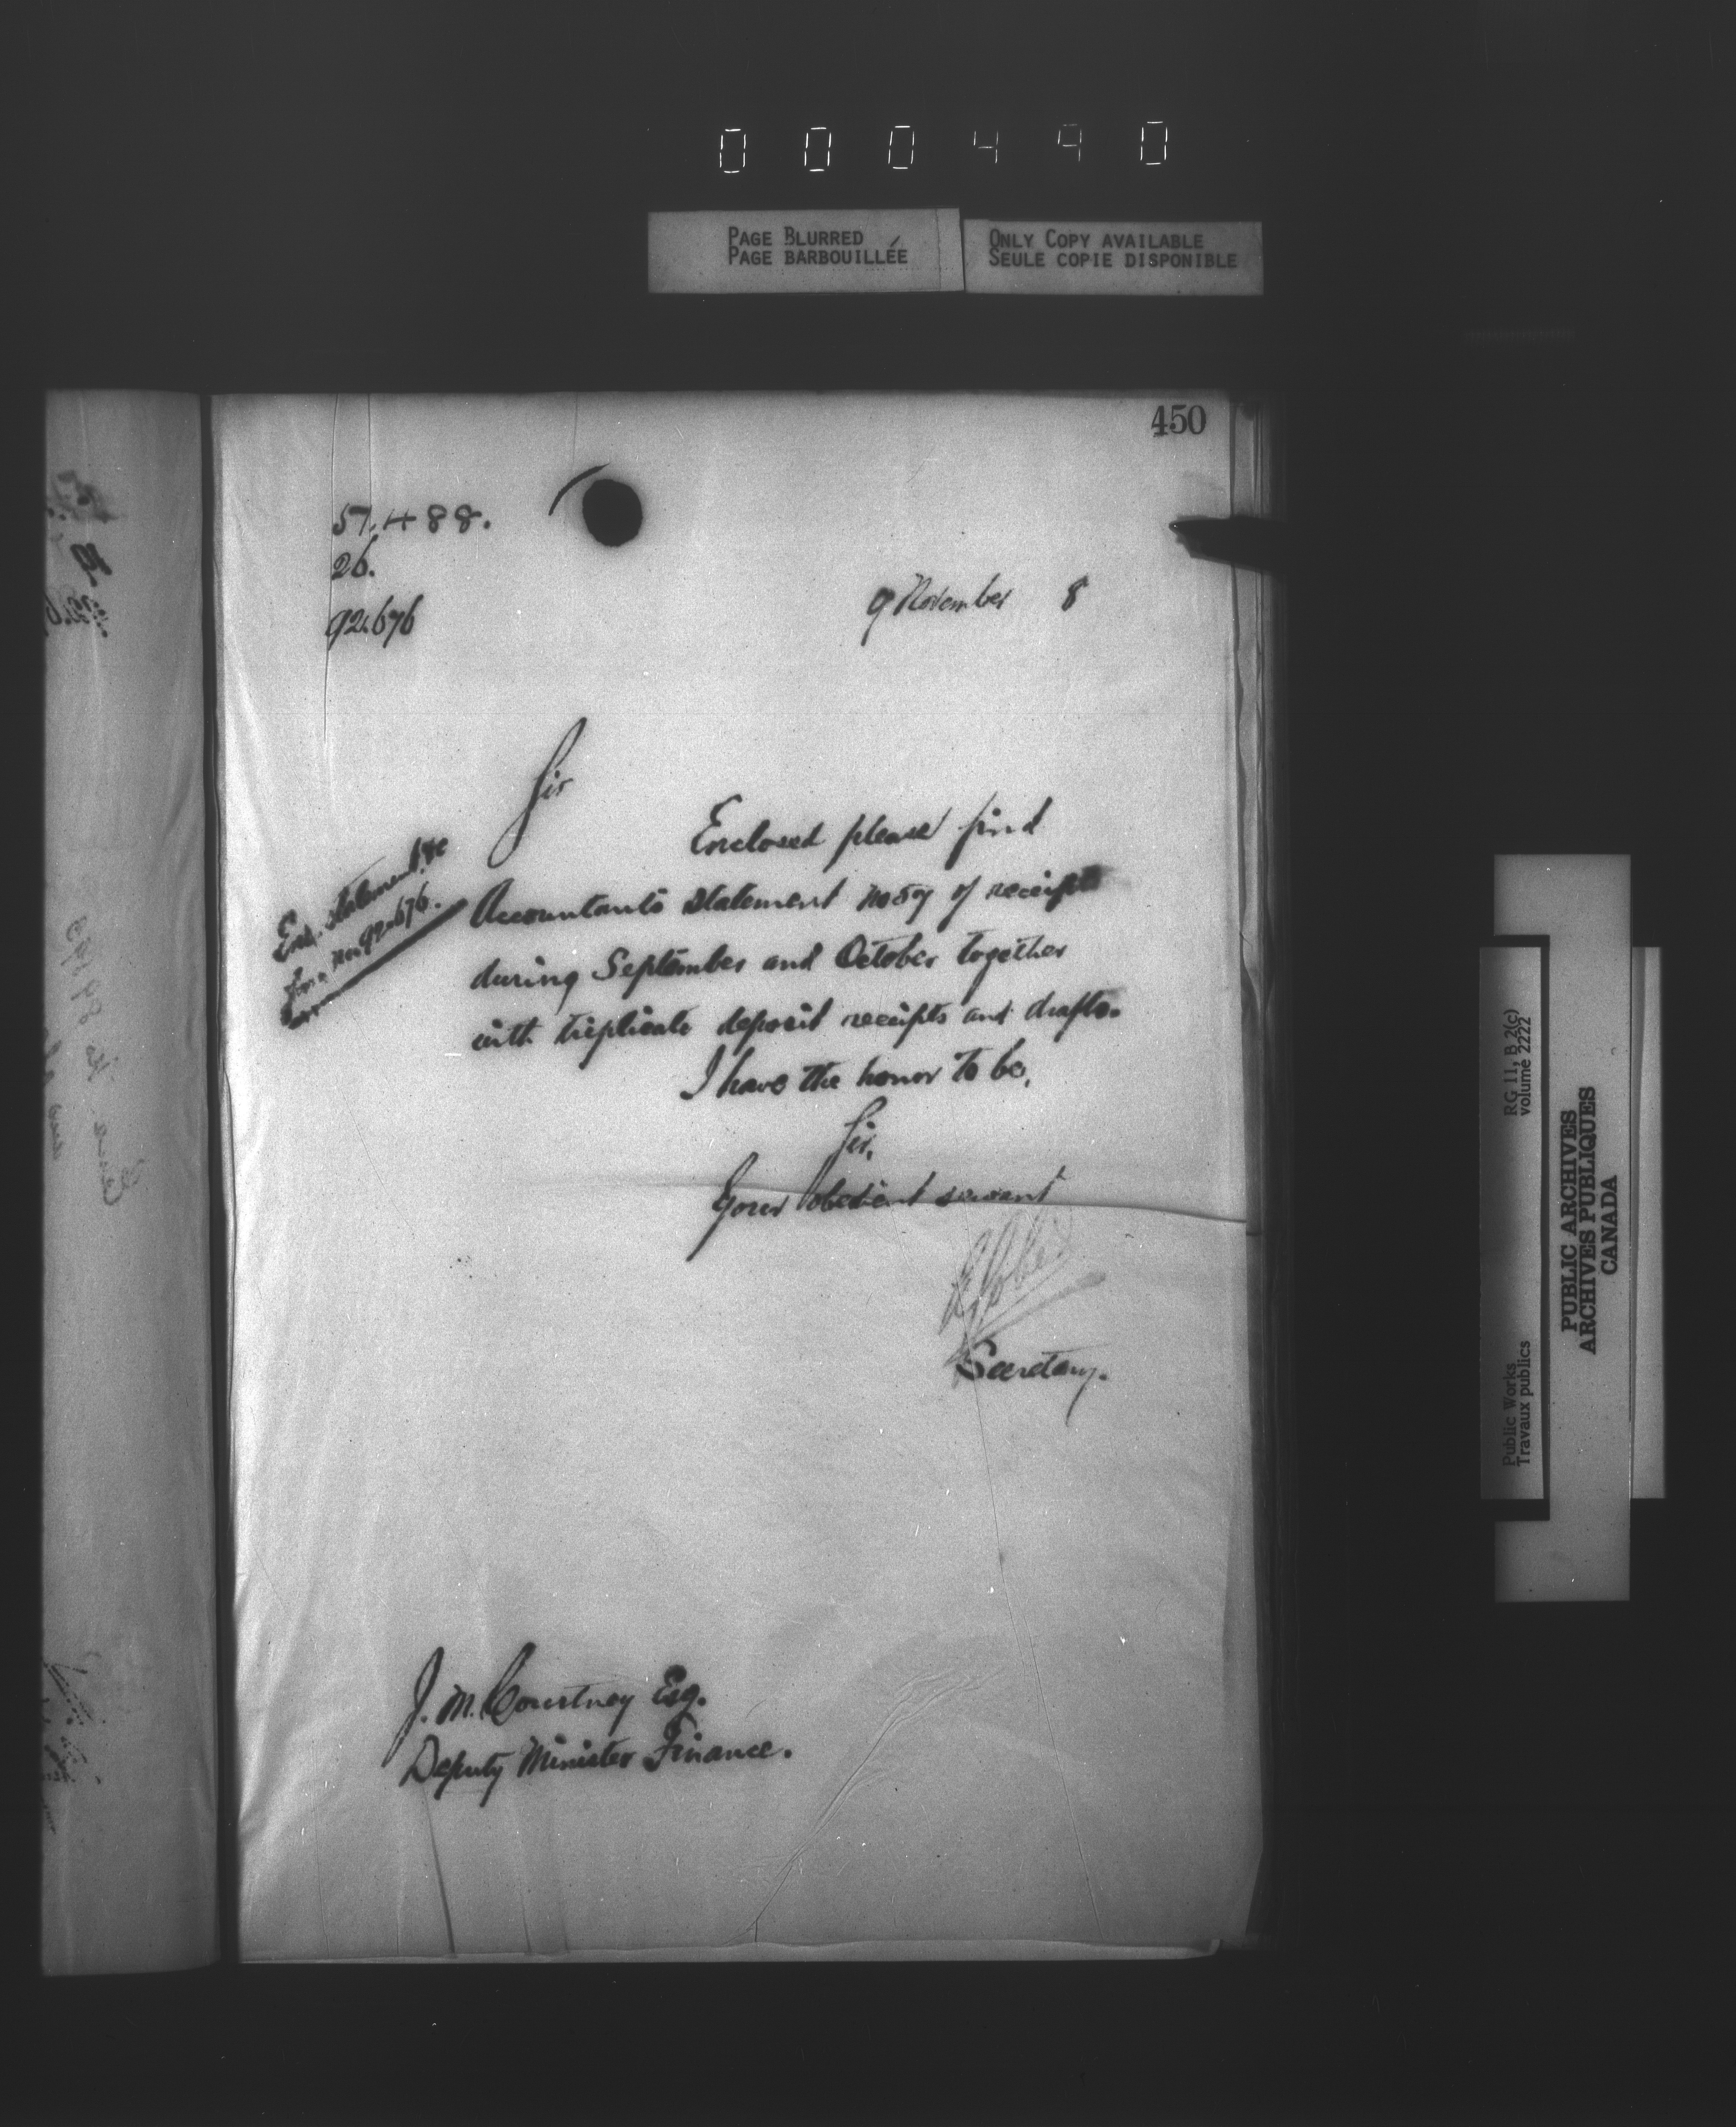 000490
PAGE BLURRED
PAGE BARBOUILLÉE
ONLY COPY AVAILABLE
SEULE COPIE DISPONIBLE
450
57,488.
26.
92.676
9 November 8
Sir
Enclosed please find
Accountants statement no 59 of receipts
during September and October together
with triplicate deposit receipts and drafts.
I have the honor to be,
Sir,
Your obedient servant
Secretary.
Enc. statement &c
from no. 92.676.
J. M. Courtney Esq.
Deputy Minister Finance.
Public Works
Travaux publics
RG 11, B 2(c)
volume 2222
PUBLIC ARCHIVES
ARCHIVES PUBLIQUES
CANADA